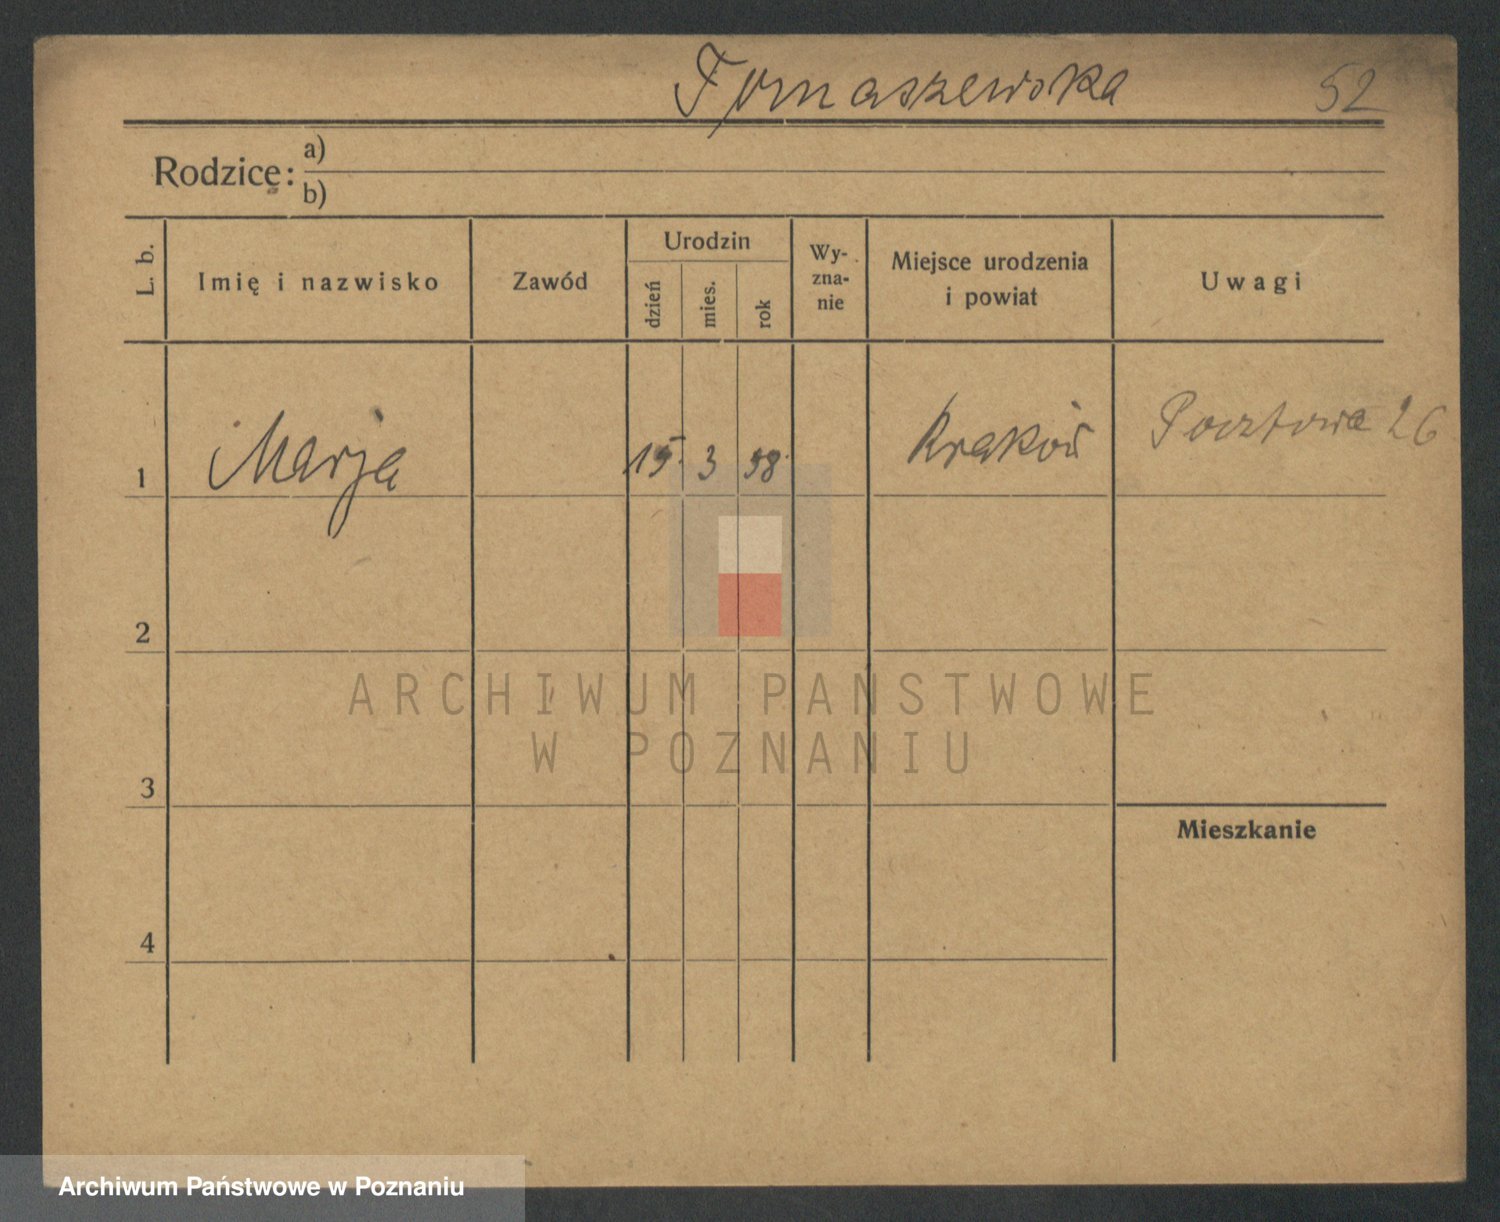 Tomaszewska 52
Rodzice: a)
b)
L. b. Imię i nazwisko Zawód Urodzin dzień mies. rok Wy-zna-nie Miejsce urodzenia i powiat Uwagi
1 Marja 15. 3 98. Kraków Pocztowa 26
2
ARCHIWUM PAŃSTWOWE
W POZNANIU
3
Mieszkanie
4
Archiwum Państwowe w Poznaniu